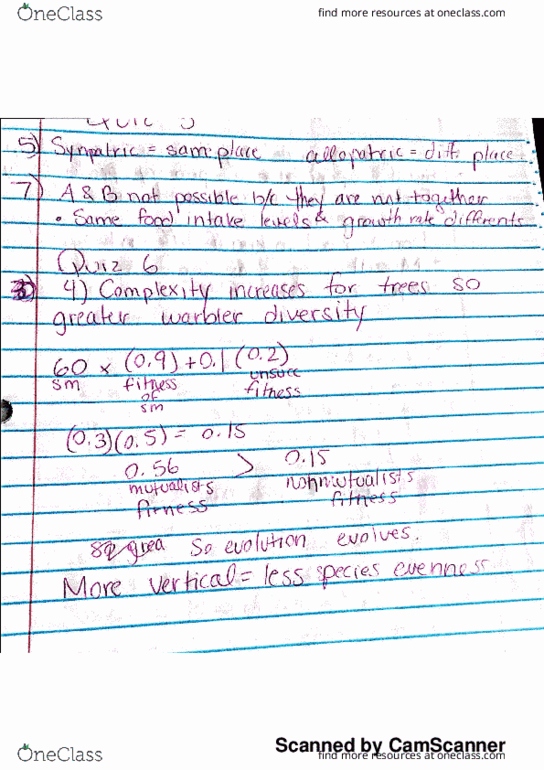 OneClass
find more resources at oneclass.com
5) Sympatric = same place allopatric = diff. place
7) A & B not possible b/c they are not together
• Same food intake levels & growth rate differents
Quiz 6
4) Complexity increases for trees so
greater warbler diversity
60 x (0.9) + 0.1 (0.2)
sm fitness of sm unsucc fitness
(0.3)(0.5) = 0.15
0.56 > 0.15
mutualists nonmutualists
fitness fitness
So evolution evolves.
More vertical = less species evenness
Scanned by CamScanner
OneClass
find more resources at oneclass.com